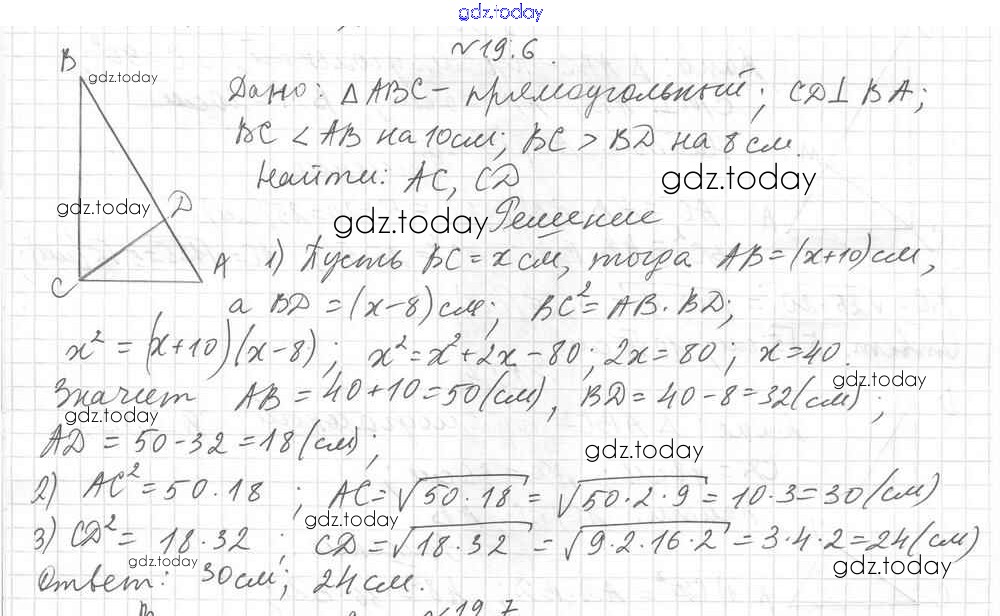 gdz.today
№19.6.
B
gdz.today
Дано: △ABC - прямоугольный; CD⊥BA;
BC < AB на 10см; BC > BD на 8 см.
Найти: AC, CD
gdz.today
gdz.today
D
gdz.today
Решение
C
A
1) Пусть BC = x см, тогда AB = (x+10) см,
а BD = (x-8) см; BC² = AB · BD;
x² = (x+10)(x-8); x² = x² + 2x - 80; 2x = 80; x = 40.
gdz.today
Значит AB = 40 + 10 = 50 (см), BD = 40 - 8 = 32 (см);
gdz.today
AD = 50 - 32 = 18 (см);
gdz.today
2) AC² = 50 · 18; AC = √50 · 18 = √50 · 2 · 9 = 10 · 3 = 30 (см)
gdz.today
3) CD² = 18 · 32; CD = √18 · 32 = √9 · 2 · 16 · 2 = 3 · 4 · 2 = 24 (см)
gdz.today
gdz.today
Ответ: 30 см; 24 см.
№19.7